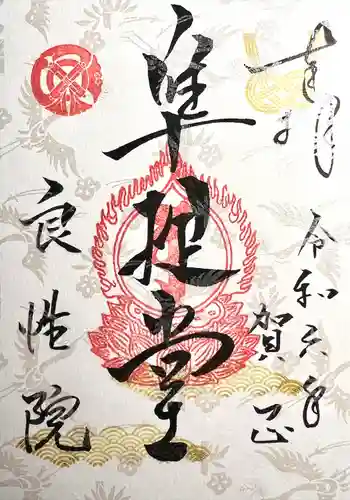 奉拝
令和六年
賀正
準提堂
良性院